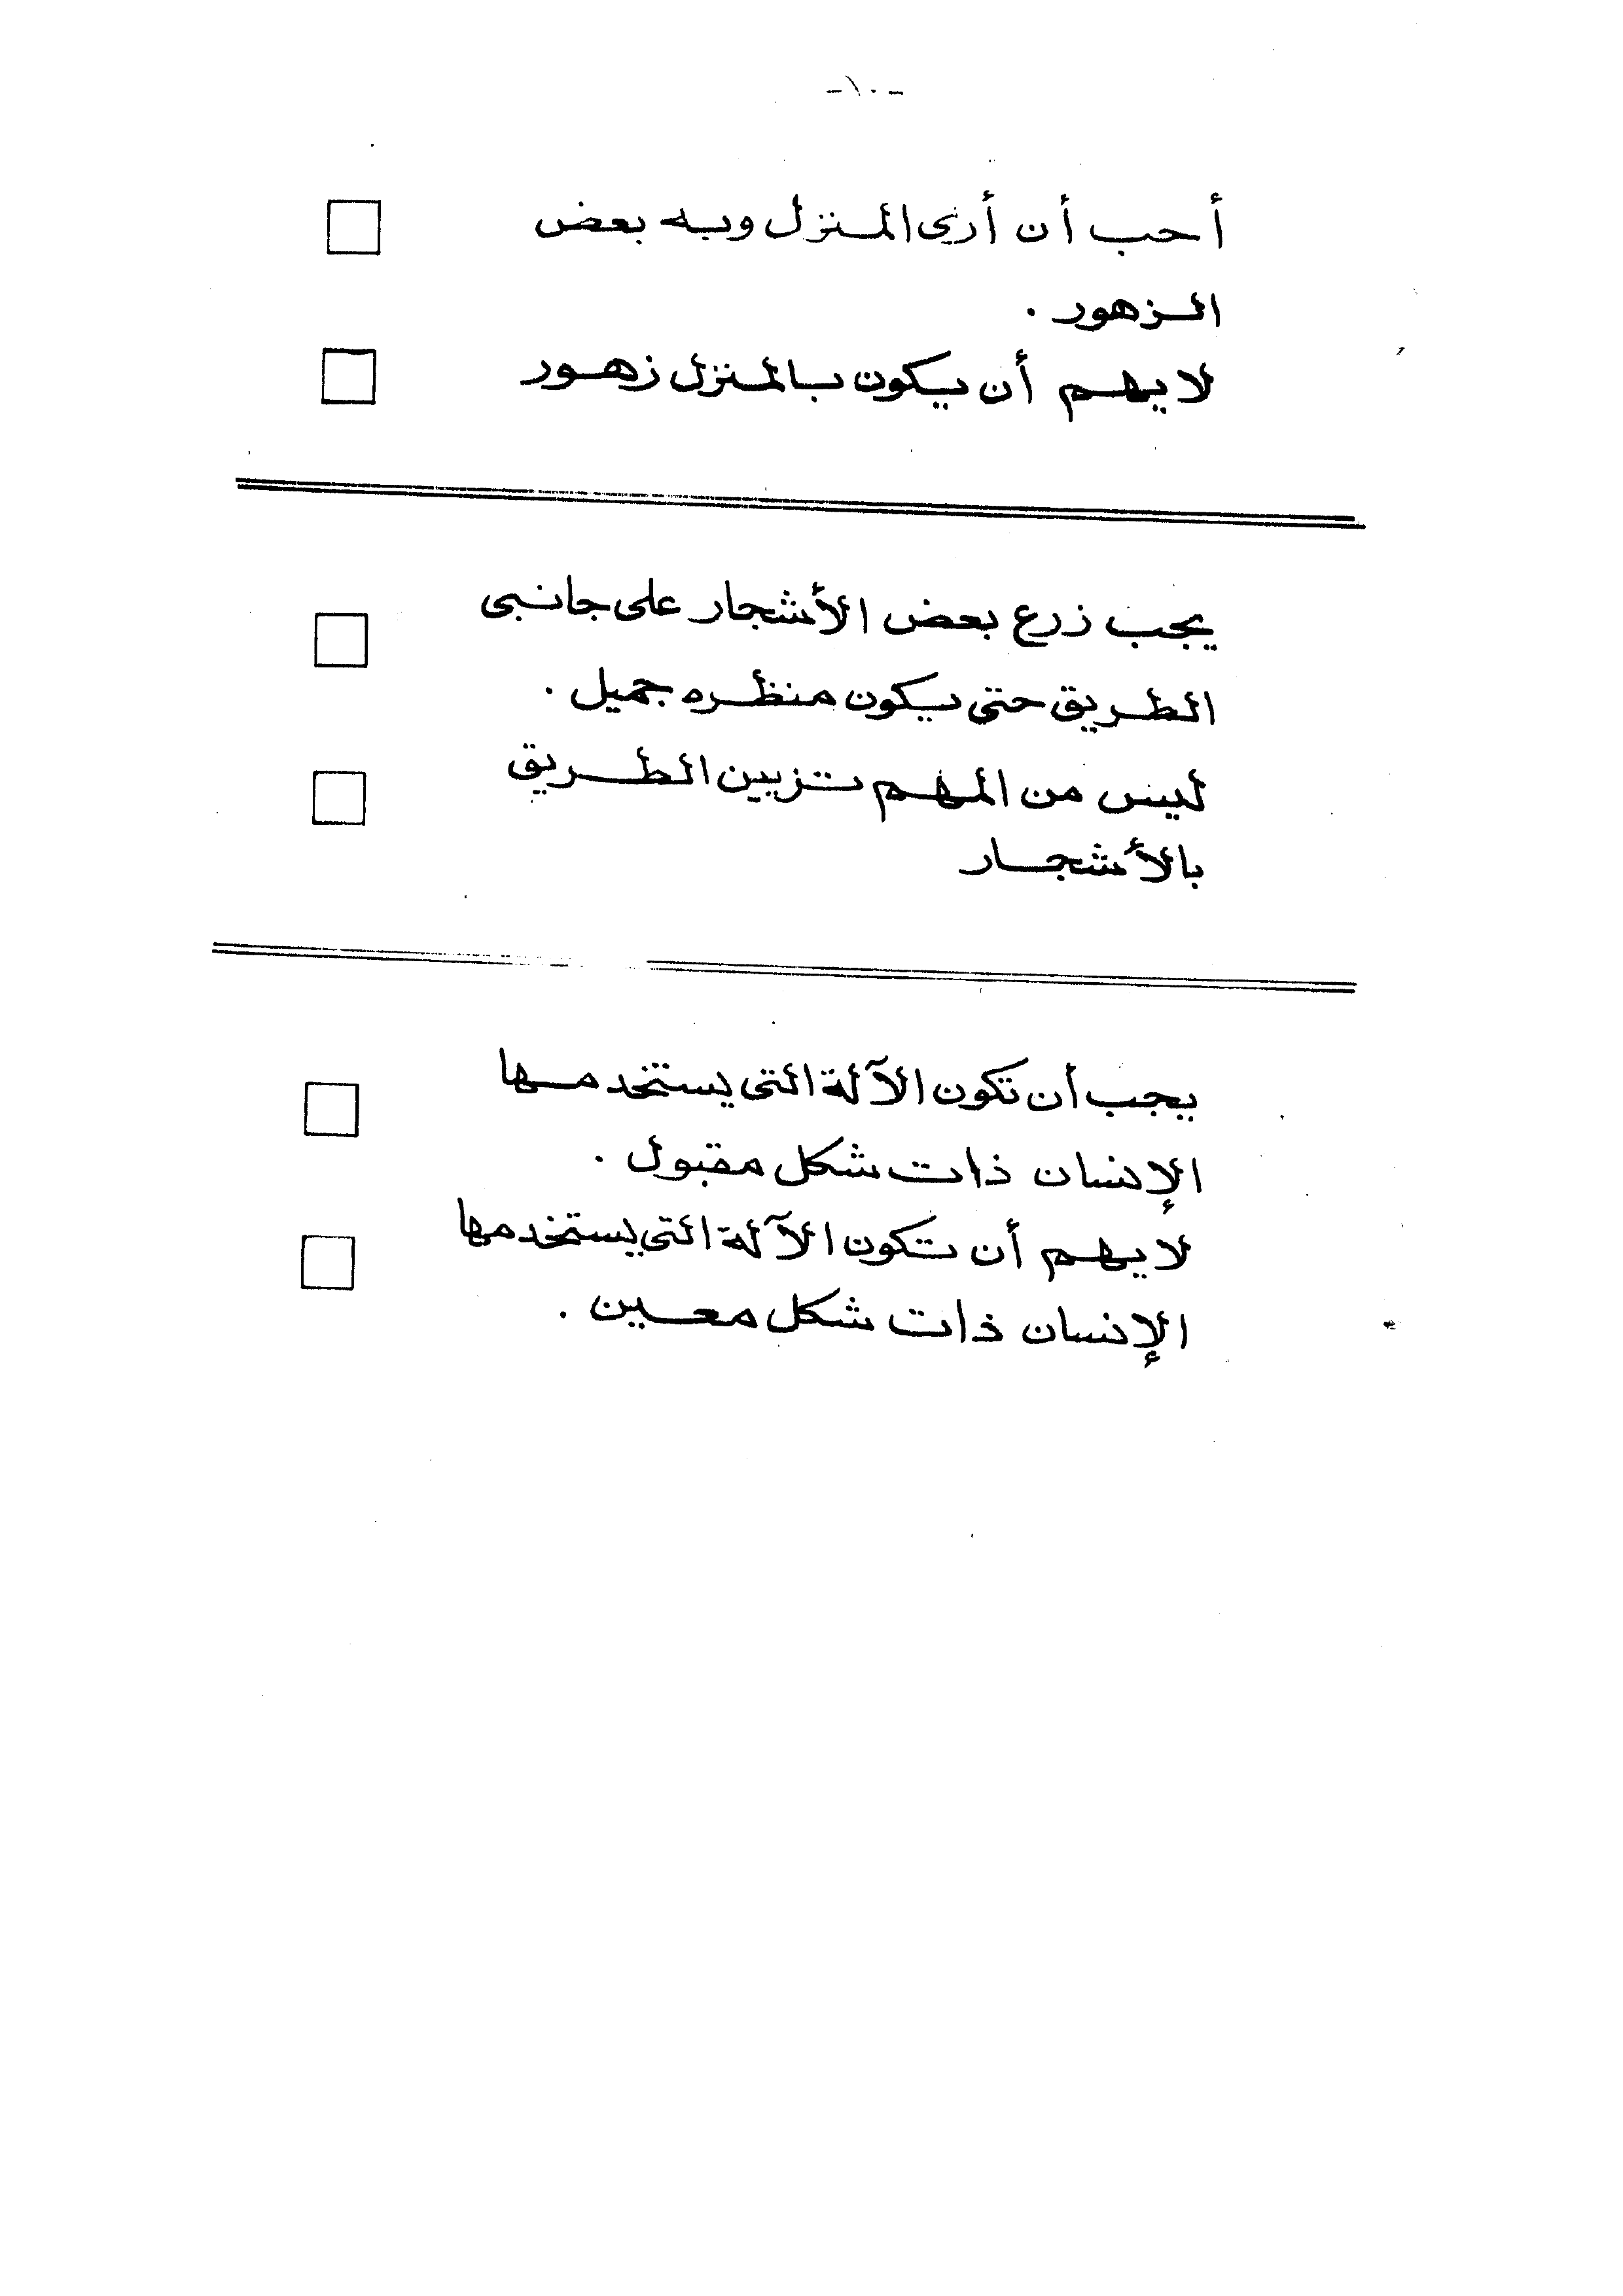 -١٠-
أحب أن أرى المنزل وبه بعض
الزهور .
لا يهم أن يكون بالمنزل زهور
يجب زرع بعض الأشجار على جانبى
الطريق حتى يكون منظره جميل .
ليس من المهم تزيين الطريق
بالأشجار
يجب أن تكون الآلة التى يستخدمها
الإنسان ذات شكل مقبول .
لا يهم أن تكون الآلة التى يستخدمها
الإنسان ذات شكل معين .